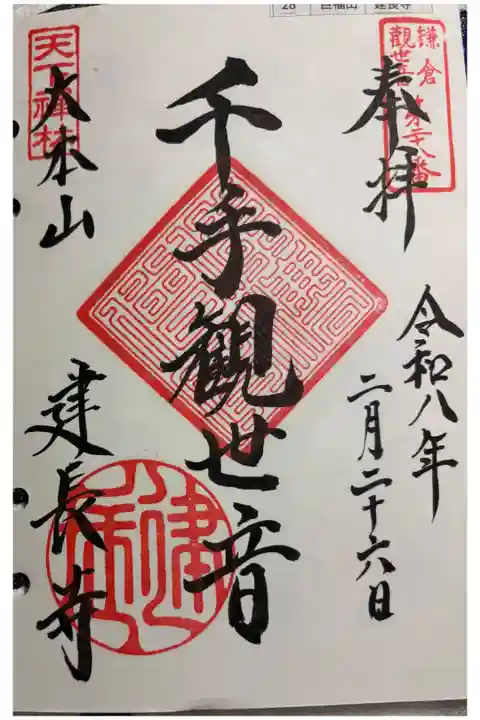 28 巨福山 建長寺
鎌倉
觀世音第二十八番
奉拝
令和八年
二月二十六日
千手観世音
天下禅林
大本山
建長寺